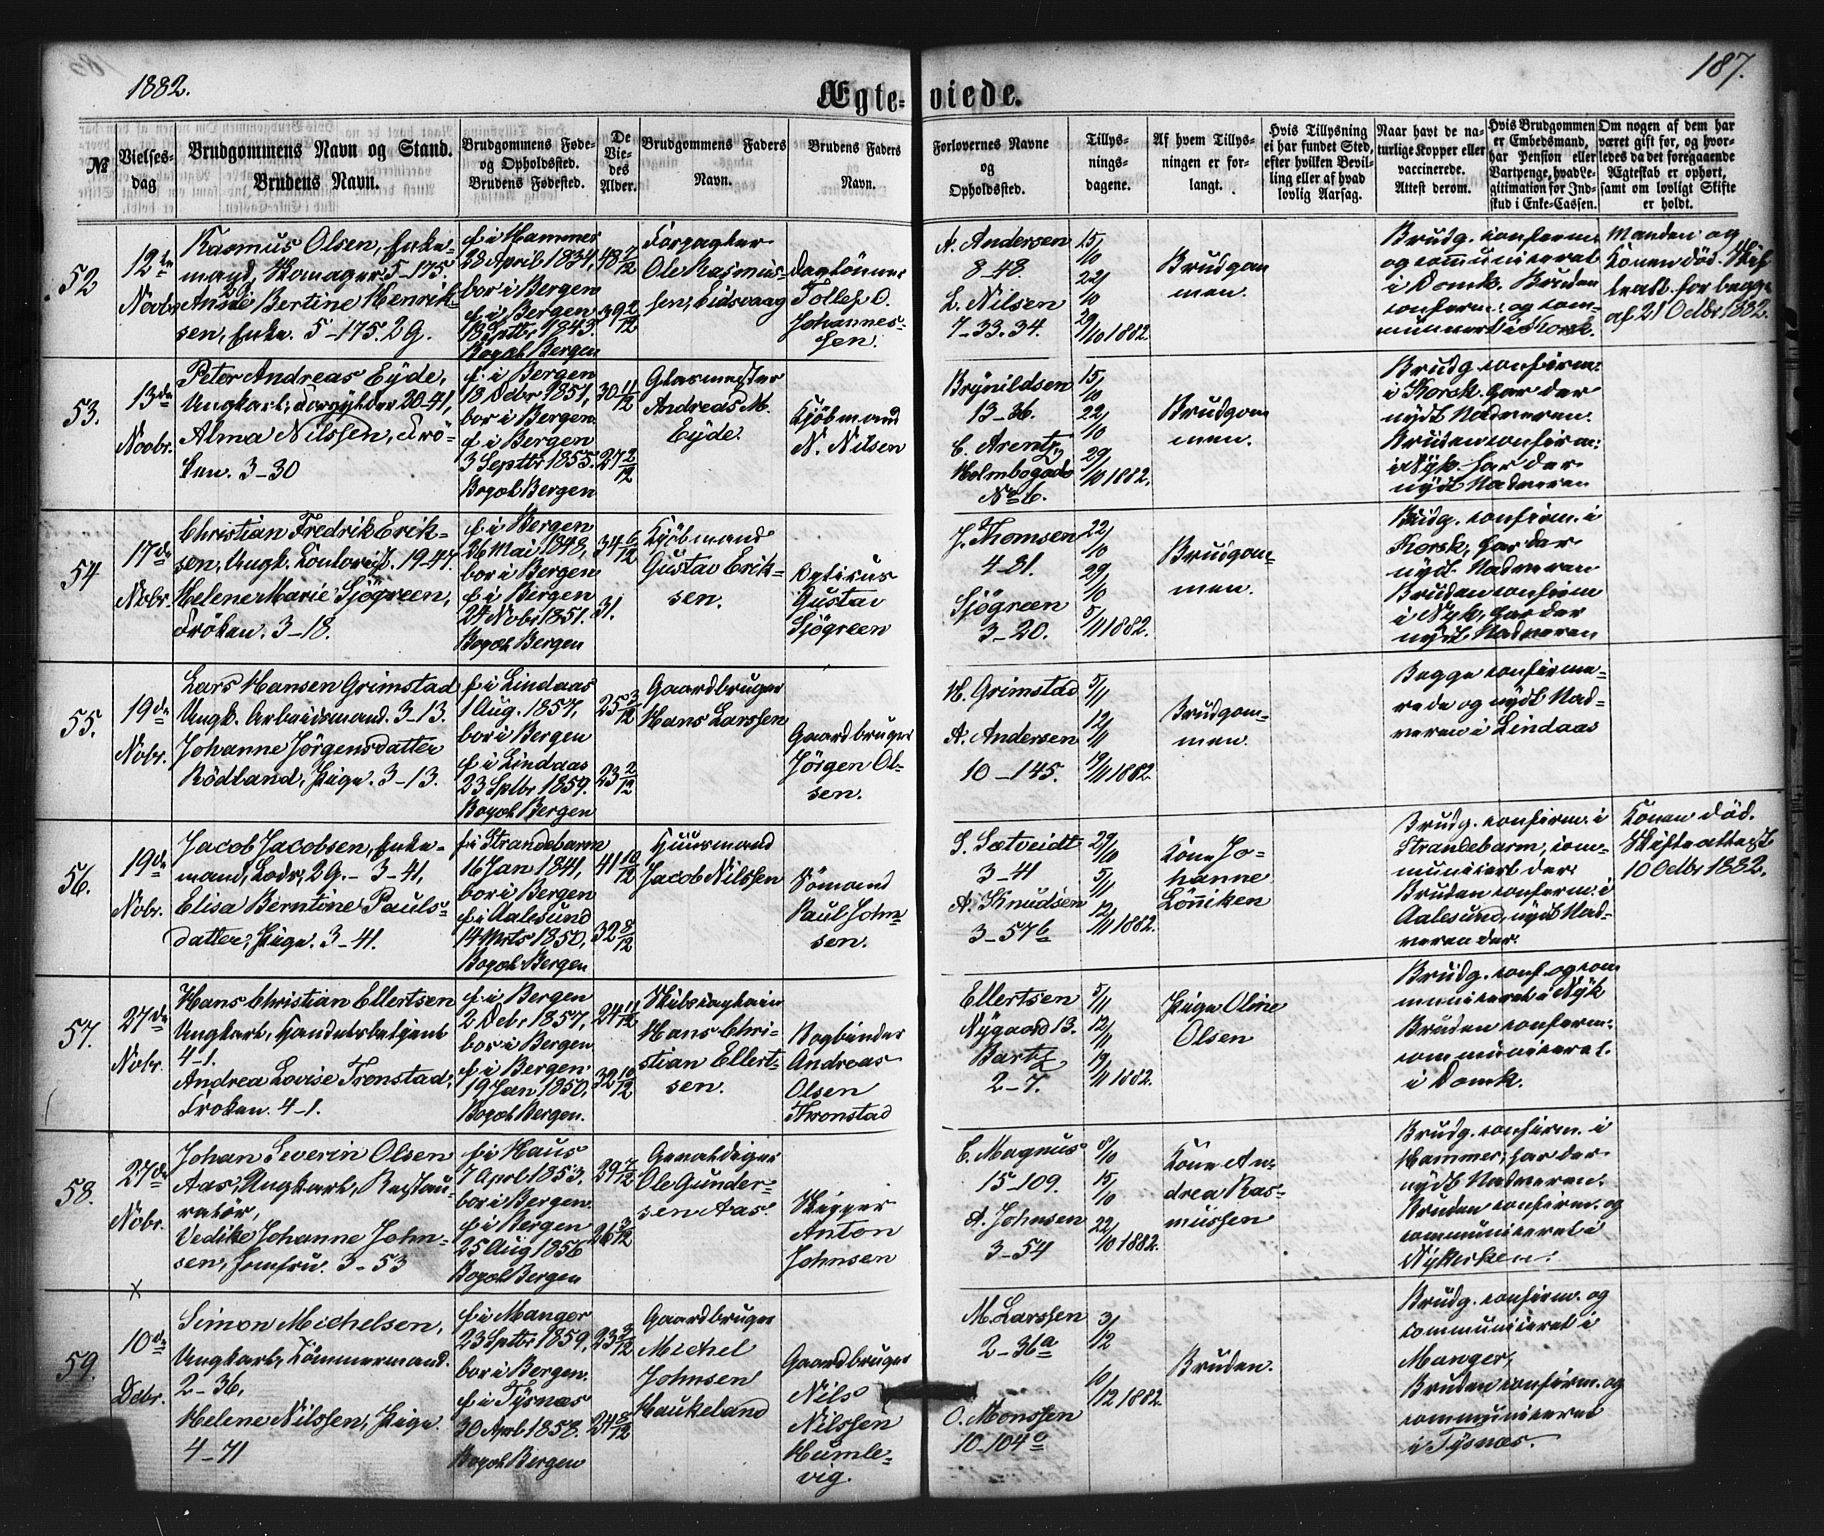 1882.
187.
Ægte-viede.
№
Vielses-
dag
Brudgommens Navn og Stand.
Brudens Navn.
Brudgommens Føde-
og Opholdssted.
Brudens Fødested.
De
Vie-
des
Alder.
Brudgommens Faders
Navn.
Brudens Faders
Navn.
Forlovernes Navne
og
Opholdssted.
Tillys-
nings-
dagene.
Af hvem Tillys-
ningen er for-
langt.
Hvis Tillysning
ei har fundet Sted,
efter hvilken Bevil-
ling eller af hvad
lovlig Aarsag.
Naar havt de na-
turlige Kopper eller
vaccinerede.
Attest derom.
Hvis Brudgommen
er Embedsmand,
har Pension eller
Vartpenge, hvad Le-
gitimation for Ind-
skud i Enke-Cassen.
Om nogen af dem har
været gift før, og hvor-
ledes da det foregaaende
Ægteskab er ophørt,
samt om lovligt Skifte
er holdt.
52
12te
Novbr.
Rasmus Olsen, Enke-
mand,
5-175.
Bertine Henrik-
sen, Enke. 5-175.29.
f. i Hammer
28 April 1834,
bor i Bergen
f. i Bergen
18 Septbr. 1843.
Bopæl Bergen
48 7/12
39 2/12
Forpagter
Ole Rasmus-
sen, Eidsvaag
Daglønner
Tollef O.
Johannes-
sen.
A. Andersen
8-48.
L. Nilsen
7-33.34.
15/10
22/10
29/10 1882.
Brudgom
men.
Brudg. confirm.
og communiceret
i Domk. Bruden
confirm. og com-
municeret i Korsk.
Manden og
Konen død. Skif-
teatt. for begge
af 21 Octbr 1882.
53.
13de
Novbr.
Peter Andreas Eyde,
Ungkarl, Forgylder 20-41,
Alma Nilssen, Frö-
ken. 3-30
f. i Bergen
18 Debr 1851,
bor i Bergen
f. i Bergen
3 Septbr 1855.
Bopæl Bergen
30 11/12
27 2/12
Glasmester
Andreas M.
Eyde.
Kjöbmand
N. Nilsen
Brynildsen
13-26.
C. Arentz
Holmbogade
No 6.
15/10
22/10
29/10 1882.
Brudgom
men.
Brudg confirm.
i Korsk. har der
nydt Nadveren.
Bruden confirm.
i Nyk. har der
nydt Nadveren
54
17de
Nobr.
Christian Fredrik Erik-
sen, Ungk. Contorist. 19-47.
Helene Marie Sjögreen,
Fröken. 3-18.
f. i Bergen
26 Mai 1848,
bor i Bergen
f. i Bergen
24 Nobr 1851.
Bopæl Bergen
34 6/12
31.
Kjöbmand
Gustav Erik-
sen.
Opticus
Gustav
Sjögreen
J. Thomsen
4-81.
Sjögreen
3-20.
22/10
29/10
5/11 1882.
Brudgom-
men.
Brudg. confirm. i
Korsk, har der
nydt Nadveren
Bruden confirm
i Nyk, har der
nydt Nadveren
55.
19de
Nobr.
Lars Hansen Grimstad
Ungk. Arbeidsmand. 3-13.
Johanne Jörgensdatter
Rödland, Pige. 3-13.
f. i Lindaas
1 Aug. 1857,
bor i Bergen
f. i Lindaas
23 Sptbr 1859.
Bopæl Bergen
25 3/12
23 2/12
Gaardbruger
Hans Larssen
Gaardbruger
Jörgen Ol-
sen.
H. Grimstad
A. Andersen
10-145.
5/11
12/11
19/11 1882.
Brudgom-
men.
Begge confirme-
rede og nydt Nad-
veren i Lindaas
56.
19de
Nobr.
Jacob Jacobsen, Enke-
mand, Lods, 29.- 3-41,
Elisa Berntine Pauls-
datter, Pige. 3-41.
f. i Strandebarm
16 Jan 1841,
bor i Bergen
f. i Aalesund
14 Mrts 1850,
Bopæl Bergen
41 10/12
32 8/12
Huusmand
Jacob Nilssen
Sömand
Paul John-
sen.
S. Sætveidt
3-41
A. Knudsen
3-57b
29/10
5/11
12/11 1882.
Kone Jo-
hanne
Lönniken
Brudg. confirm. i
Strandebarm, com-
municeret der
Bruden confirm. i
Aalesund, nydt Nad-
veren der.
Konen död.
Skifteattest
10 Octbr 1882.
57.
27de
Nobr.
Hans Christian Ellertsen
Ungkarl, Handelsbetjent
4-1.
Andrea Lovise Tronstad,
Froken. 4-1.
f. i Bergen
2 Debr 1857,
bor i Bergen
f. i Bergen
19 Jan 1850,
Bopæl Bergen.
24 11/12
32 10/12
Skibscaptain
Hans Chri-
stian Ellert-
sen.
Bogbinder
Andreas
Olsen
Thronstad
Ellertsen
Nygaard 13.
Bartz
2-7.
5/11
12/11
19/11 1882.
Pige Oline
Olsen
Brudg. conf. og com
municeret i Nyk
Bruden confirm.
communiceret.
i Domk.
58.
27de
Nobr.
Johan Severin Olsen
Aas, Ungkarl, Restau-
ratör,
Vedike Johanne John-
sen, Jomfru. 3-53
f. i Haus
7 Aprl 1853,
bor i Bergen.
f. i Bergen
25 Aug 1856
Bopæl Bergen
29 7/12
26 3/12
Ole Gunder-
sen Aas.
Skipper
Anton
Johnsen
C. Magnus
15-109.
A. Johnsen
3-54
8/10
15/10
22/10 1882.
Kone An-
drea Ras-
mussen
Brudg. confirm. i
Hammer, har der
nydt Nadveren.
Bruden confirm. og
communiceret i
Nykirken.
x
59.
10de
Debr.
Simon Michelsen,
Ungkarl, Tömmermand.
2-36,
Helene Nilssen, Pige.
4-71
f. i Manger
23 Sptbr 1859,
bor i Bergen.
f. i Tysnæs
30 Aprl 1858.
Bopæl Bergen
23 3/12
24 8/12
Gaardbruger
Michel
Johnsen
Haukeland
Gaardbruger
Nils
Nilssen
Humle-
vig.
M. Larssen
2-36a
O. Monssen
10-104c
3/12
10/12 1882.
Bruden.
Brudg. confirm. og
communiceret i
Manger,
Bruden confirm. og
communiceret
i Tysnæs.